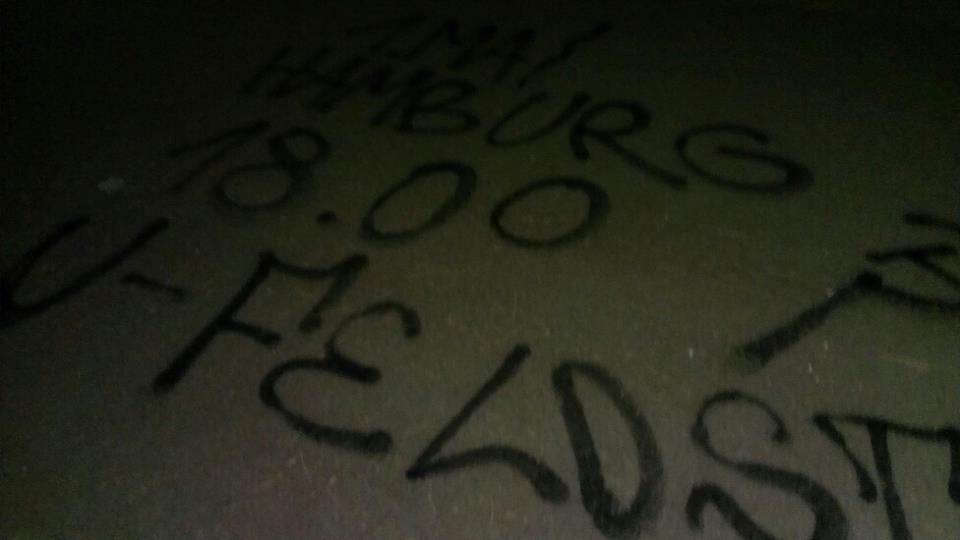 1 MAI
HAMBURG
18.00
U-FELDST